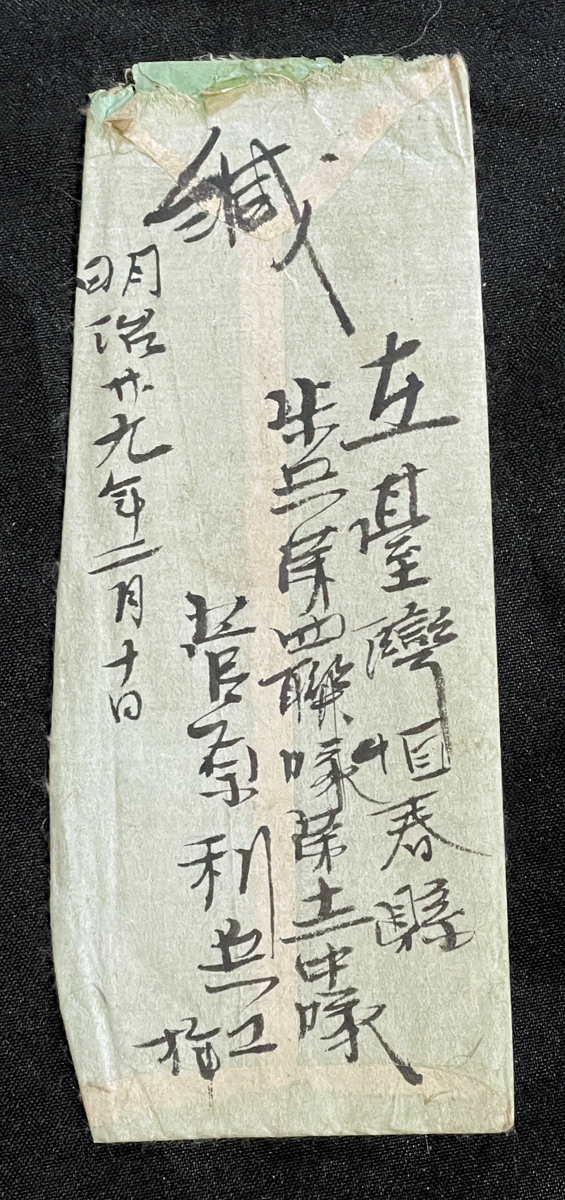 在臺灣恒春縣
歩兵第四聯隊第十一中隊
菅原利兵
緘
明治廿九年二月十日